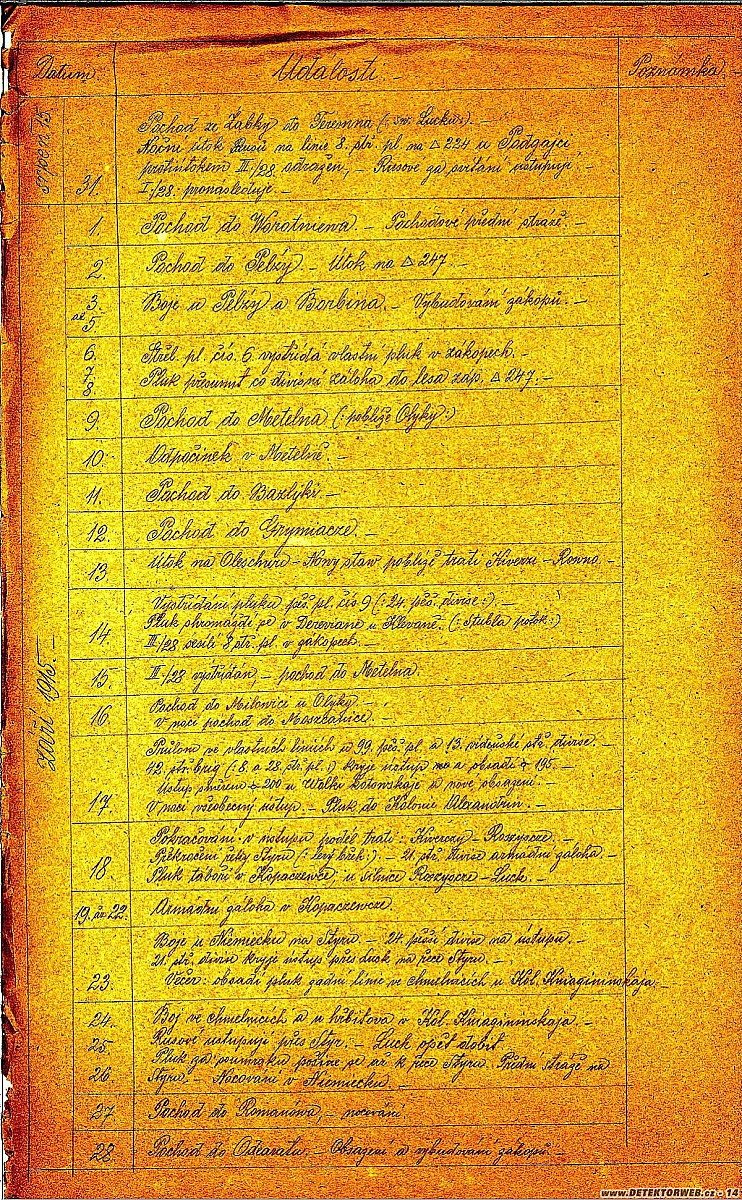 Datum
Události -
Poznámka. -
srpen 15
Pochod ze Žabky do Teremna (: sev. Luckur). -
Noční útok Rusů na linie 8. stř. pl. na △ 224 u Podgajci
protiútokem III./28. odražen, - Rusové za svítání ustupují -
31. I./28. pronasleduje. -
1. Pochod do Worotniewa. - Pochodové přední stráže. -
2. Pochod do Pelžy. - Útok na △ 247
3. až 5. Boje u Pelžy a Borbina. - Vybudování zákopů. -
6. Střel. pl. čís. 6 vystřídá vlastní pluk v zákopech. -
7. 8. Pluk přesunut co divisní záloha do lesa záp. △ 247. -
9. Pochod do Metelna (: poblíže Olyky :)
10. Odpočinek v Metelně. -
11. Pochod do
12. Pochod do Grymiacze. -
13. Útok na - Nowy staw poblíže trati Kiverzi - Rowno. -
září 1915. -
Vystřídání pluku pěš. pl. čís 9 (: 24. pěš. divise :). -
Pluk shromáždí se v Dereviane u Klevaně. (: Stubla potok :)
14. III./28 sesílí 8 stř. pl. v zákopech. -
15. III./28 vystřídán, - pochod do Metelna.
16. Pochod do Milowici u Olyky. -
v noci pochod do Moszkatnice. -
Průlom ve vlastních liniích u 99. pěš. pl. a 13. vídeňské stř. divise. -
42. stř. brig (: 8. a 28. stř. pl. :) kryje ústup a obsadí 195. -
Ústup směrem 200 u Wolki Kotowskaje a nové obsazení. -
17. V noci všeobecný ústup. - Pluk do Kolonie Alexandrin. -
Pokračování v ústupu podél trati: Kiwerczy - Rozyszcze. -
Překročení řeky Styru (: levý břeh :). - 21. stř. divise armádní záloha -
18. Pluk táboří v Kopaczewce, u silnice Rozyszcze - Luck. -
19. až 22. Armádní záloha v Kopaczewcze.
Boje u Niemiecku na Styru. - 24. pěší divise na ústupu. -
21. stř. divise kryje ústup přes Luck na řece Styru. -
23. Večer: obsadí pluk zadní linie ve chmelnicích u Kol. Kniagininskaja. -
24. Boj ve chmelnicích a u hřbitova v Kol. Kniagininskaja. -
25. Rusové ustupují přes Styr. - Luck opět dobit. -
Pluk za soumraku pošine se až k řece Styru. Přední stráže na
26. Styru. - Nocování v Niemiecku. -
27. Pochod do Romanówa, - nocování.
28. Pochod do - Obsazení a vybudování zákopů. -
www.DETEKTORWEB.cz - 14